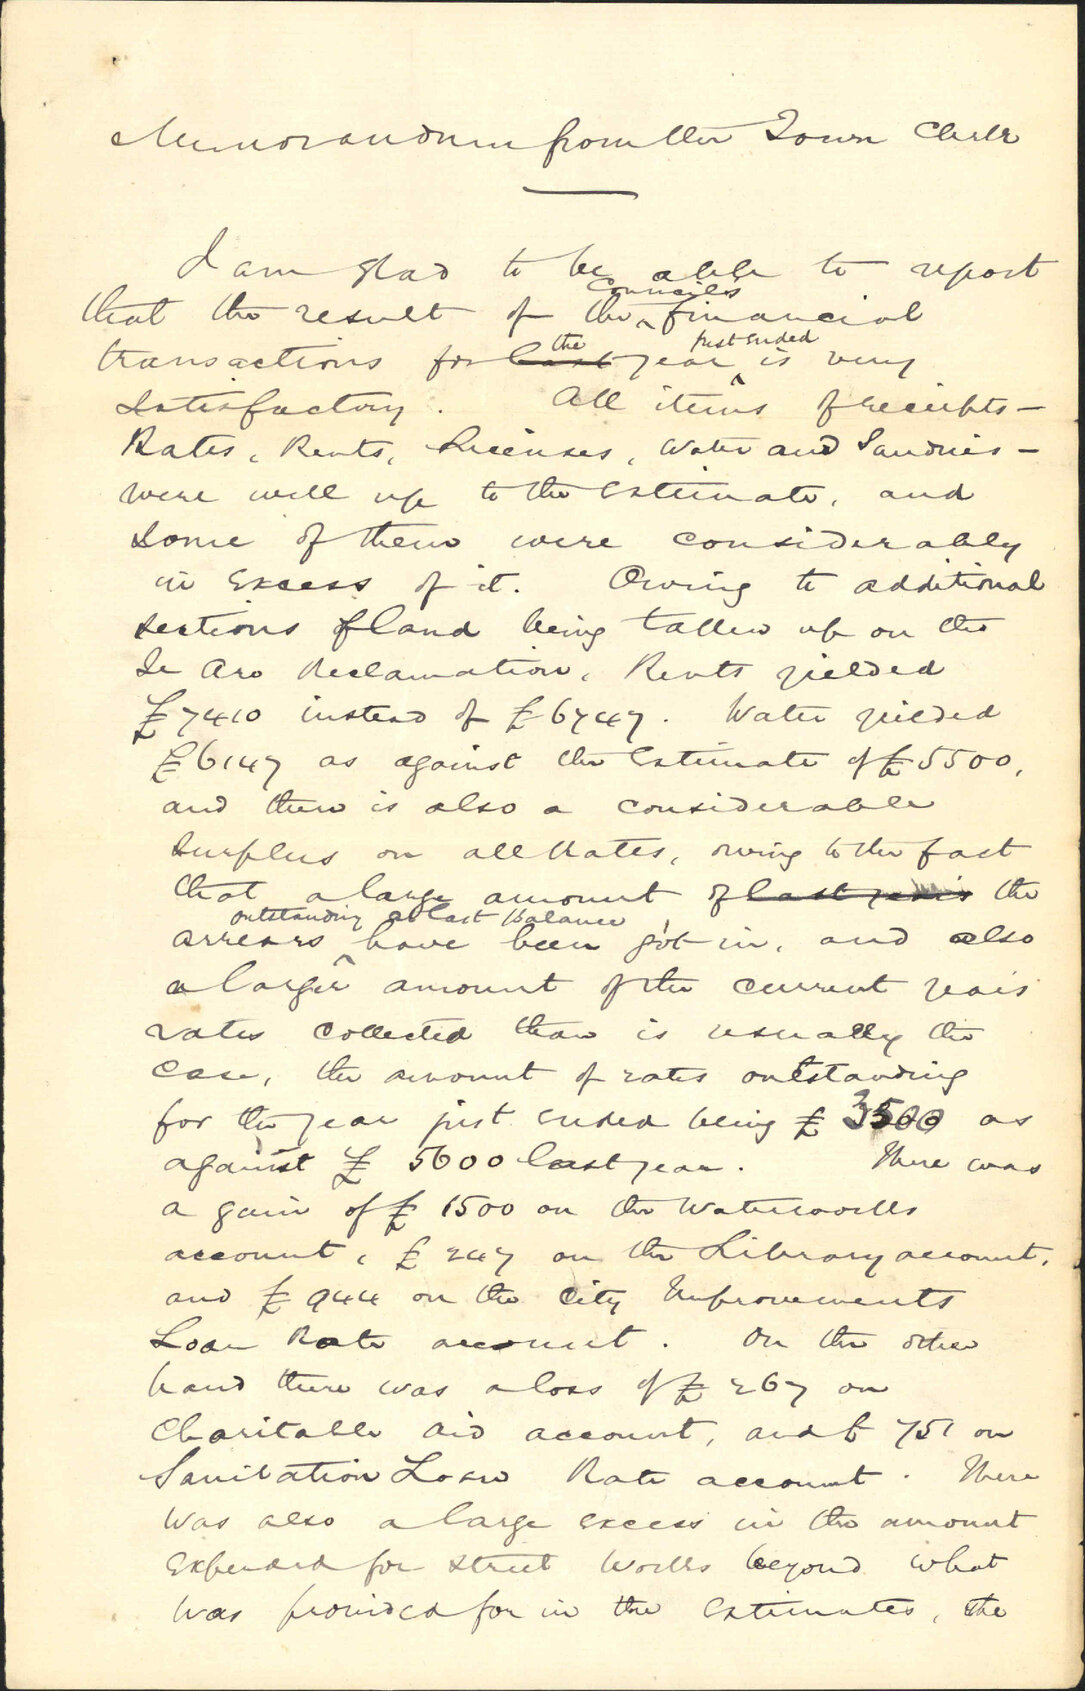 Memorandum from the Town Clerk
I am glad to be able to report
that the result of the Council's financial
transactions for last the year just ended is very
satisfactory. All items of receipts –
Rates, Rents, Licenses, Water and Sundries –
were well up to the estimate, and
some of them were considerably
in excess of it. Owing to additional
sections of land being taken up on the
Te Aro Reclamation, Rents yielded
£7410 instead of £6747. Water yielded
£6147 as against the estimate of £5500,
and there is also a considerable
surplus on all Rates, owing to the fact
that a large amount of last year's the
arrears outstanding at last Balance have been got in, and also
a larger amount of the current years
rates collected than is usually the
case, the amount of rates outstanding
for the year just ended being £ 3500 as
against £ 5600 last year. There was
a gain of £ 1500 on the Waterworks
account, £ 247 on the Library account,
and £ 944 on the City Improvements
Loan Rate account. On the other
hand there was a loss of £ 267 on
Charitable Aid account, and £ 751 on
Sanitation Loan Rate account. There
was also a large excess in the amount
expended for street works beyond what
was provided for in the estimates, the